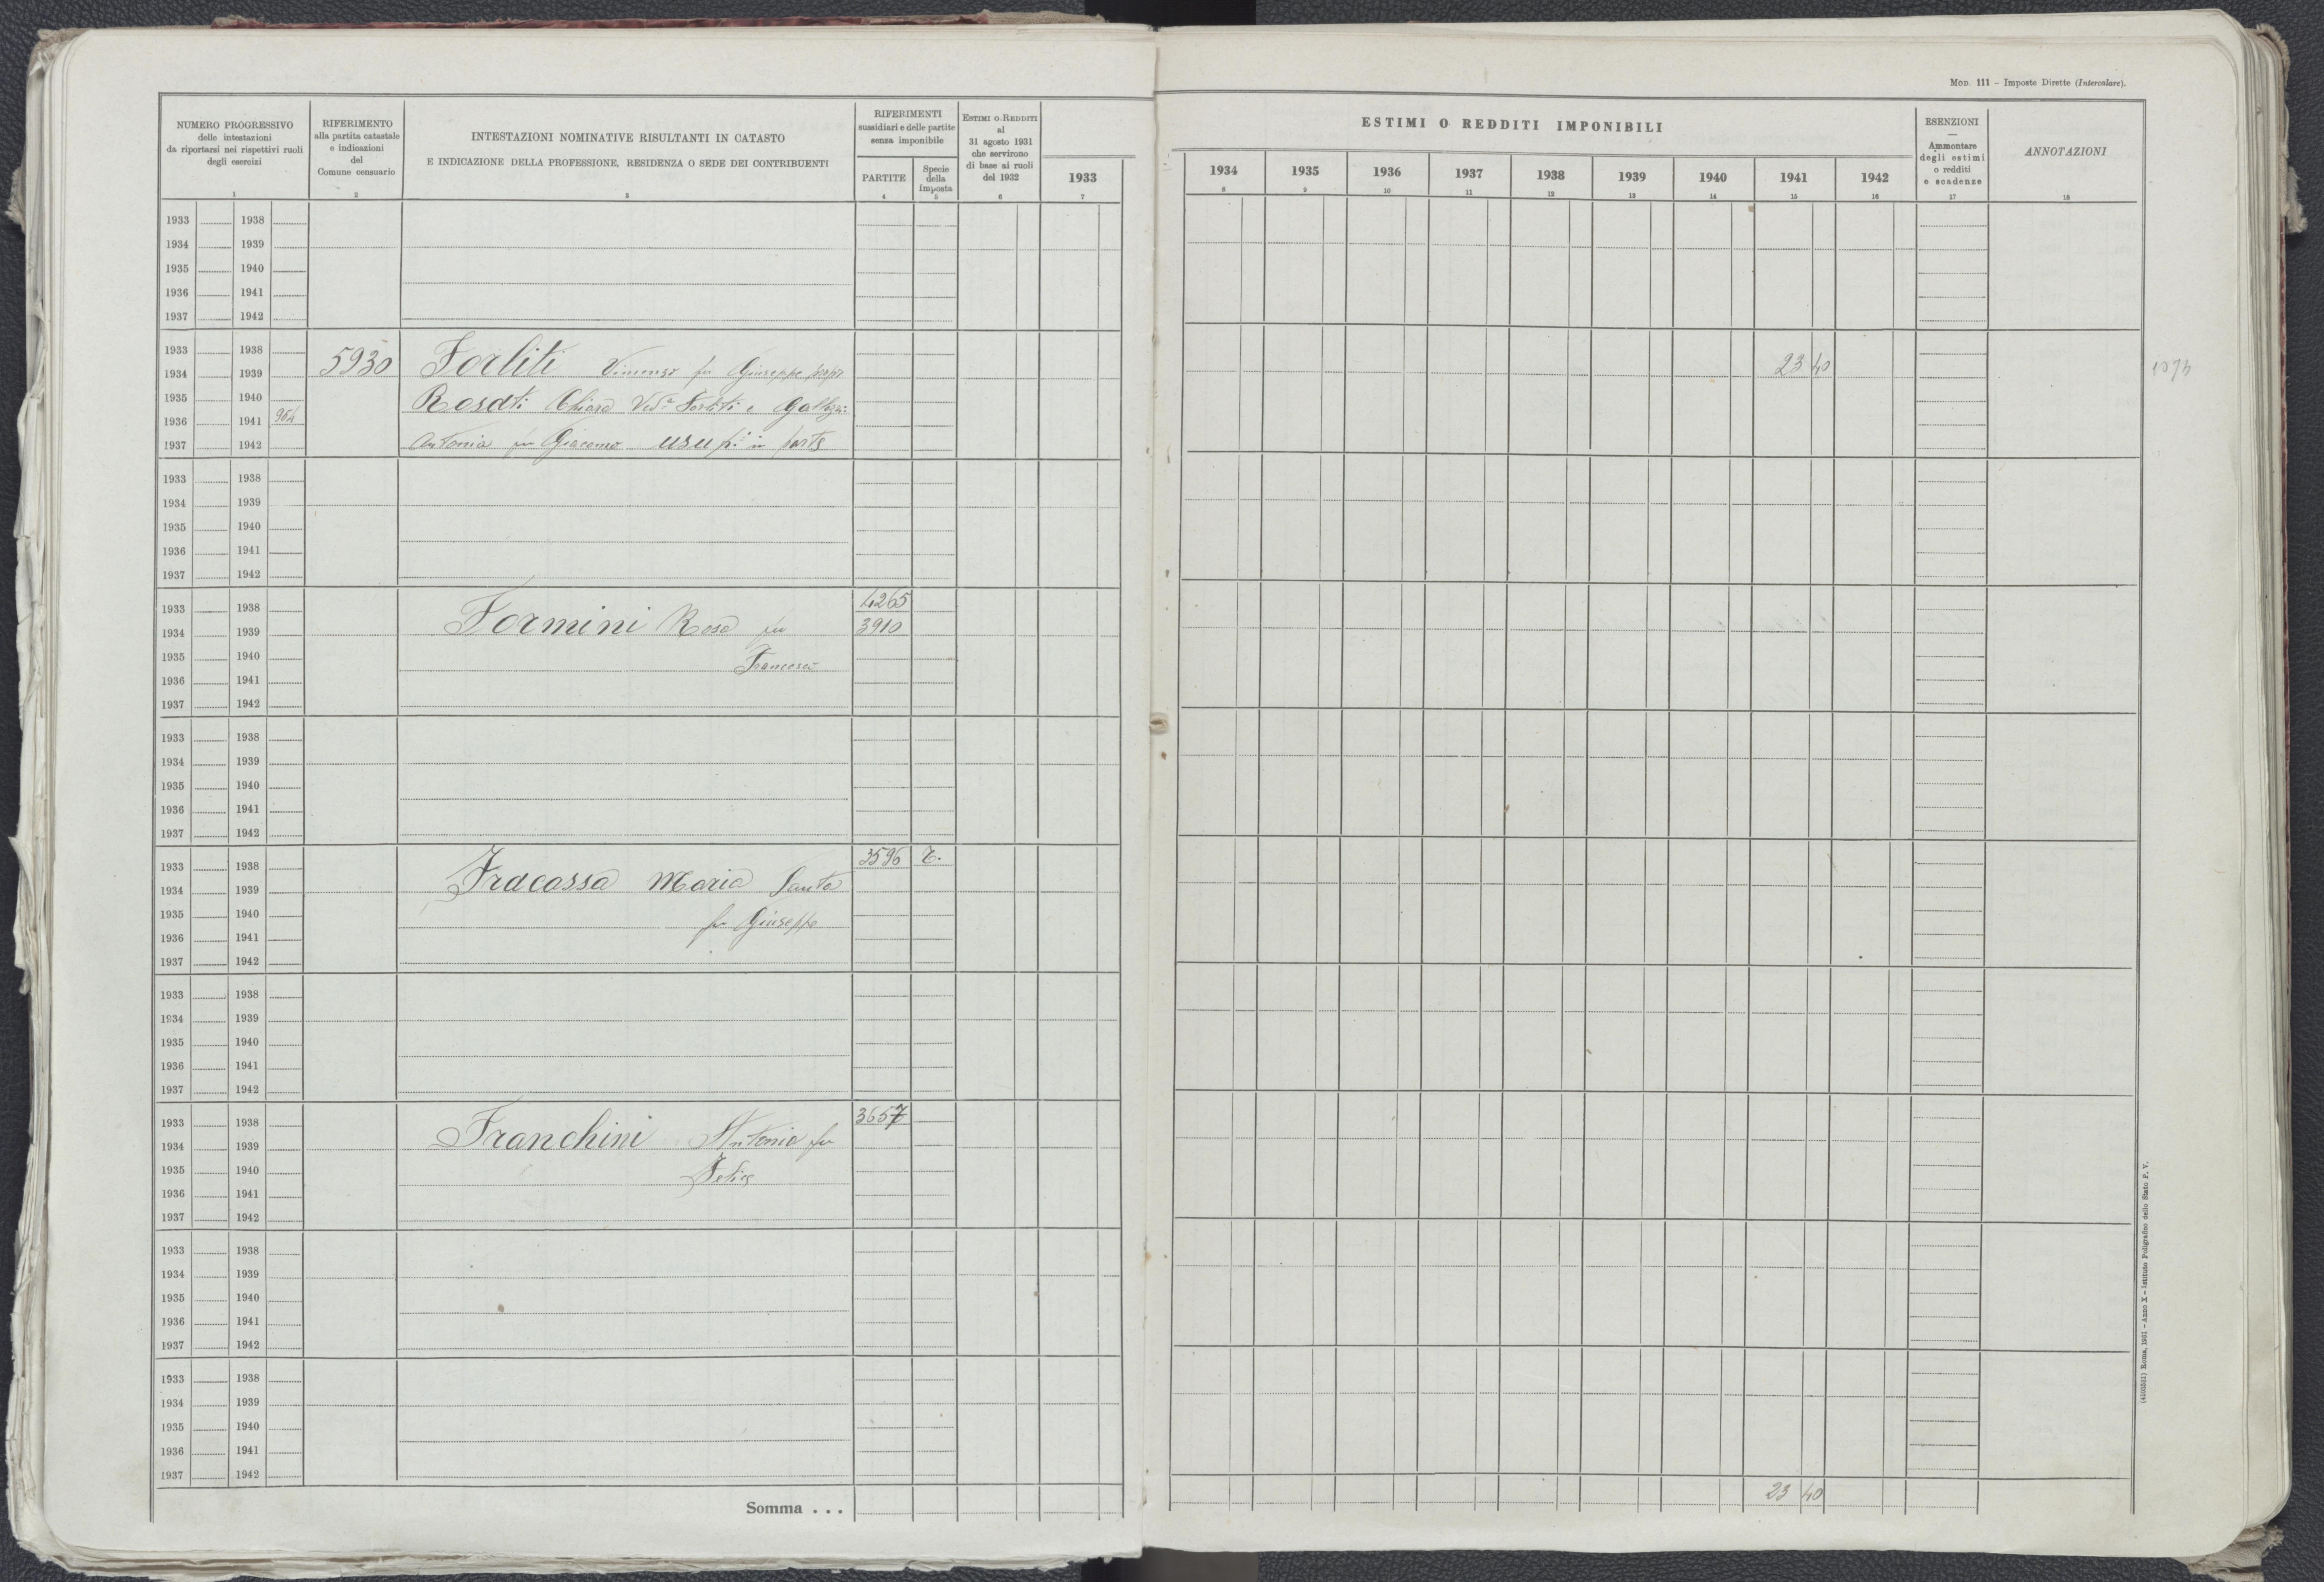 MOD. 111 – Imposte Dirette (Intercalare).
NUMERO PROGRESSIVO
delle intestazioni
da riportarsi nei rispettivi ruoli
degli esercizi
1
RIFERIMENTO
alla partita catastale
e indicazioni
del
Comune censuario
2
INTESTAZIONI NOMINATIVE RISULTANTI IN CATASTO
E INDICAZIONE DELLA PROFESSIONE, RESIDENZA O SEDE DEI CONTRIBUENTI
3
RIFERIMENTI
sussidiari e delle partite
senza imponibile
PARTITE
4
Specie
della
imposta
5
ESTIMI O REDDITI
al
31 agosto 1931
che servirono
di base ai ruoli
del 1932
6
1933
7
ESTIMI O REDDITI IMPONIBILI
1934 1935 1936 1937 1938 1939 1940 1941 1942
8 9 10 11 12 13 14 15 16
ESENZIONI
—
Ammontare
degli estimi
o redditi
e scadenze
17
ANNOTAZIONI
18
1933 1938
1934 1939
1935 1940
1936 1941
1937 1942
1933 1938
1934 1939 5930 Forliti Vincenzo fu Giuseppe propr 23 40
1935 1940 Rosati Chiara Ved.a Forliti e
1936 1941 964
1937 1942 Antonia fu Giacomo usuf.i in parte
1933 1938
1934 1939
1935 1940
1936 1941
1937 1942
1933 1938 4265
1934 1939 Formini Rosa fu 3910
1935 1940 Francesco
1936 1941
1937 1942
1933 1938
1934 1939
1935 1940
1936 1941
1937 1942
1933 1938 3596
1934 1939 Fracassa Maria Santa
1935 1940 fu Giuseppe
1936 1941
1937 1942
1933 1938
1934 1939
1935 1940
1936 1941
1937 1942
1933 1938 3657
1934 1939 Franchini Antonio fu
1935 1940 Felice
1936 1941
1937 1942
1933 1938
1934 1939
1935 1940
1936 1941
1937 1942
1933 1938
1934 1939
1935 1940
1936 1941
1937 1942
Somma . . . 23 40